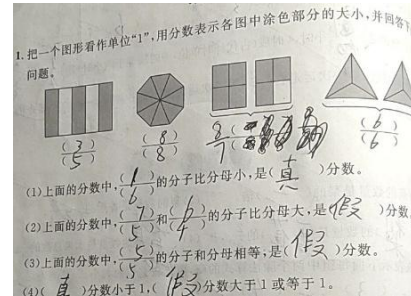 1.把一个图形看作单位“1”,用分数表示各图中涂色部分的大小,并回答
问题。
(3)/(5) (8)/(8) (6)/(6)
(1)上面的分数中,(1)/(6)的分子比分母小,是(真)分数。
(2)上面的分数中,(7)/(5)和(6)/(4)的分子比分母大,是(假)分数
(3)上面的分数中,(5)/(5)的分子和分母相等,是(假)分数。
(4)(真)分数小于1,(假)分数大于1或等于1。